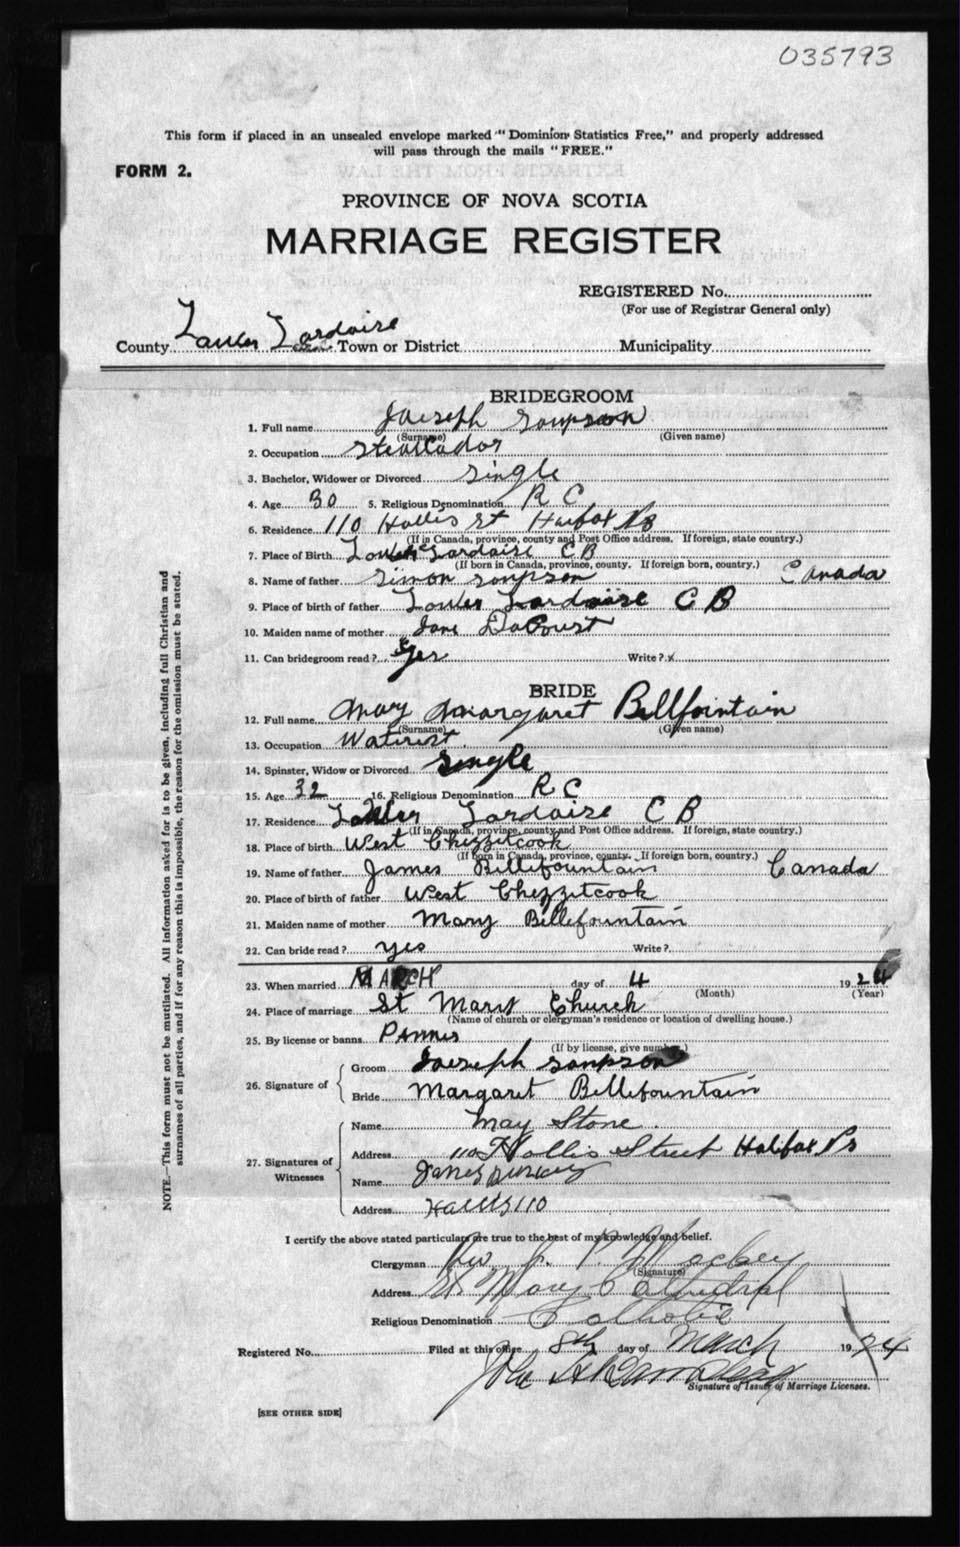 035793
This form if placed in an unsealed envelope marked "Dominion Statistics Free," and properly addressed
will pass through the mails "FREE."
FORM 2.
PROVINCE OF NOVA SCOTIA
MARRIAGE REGISTER
REGISTERED No.
(For use of Registrar General only)
County Lardaise Town or District Municipality
BRIDEGROOM
1. Full name Joeseph Sonpson
(Surname) (Given name)
2. Occupation
3. Bachelor, Widower or Divorced Single
4. Age 30 5. Religious Denomination R C
6. Residence 110 Hollis St Halifax NS
(If in Canada, province, county and Post Office address. If foreign, state country.)
7. Place of Birth Lardaise C B
(If born in Canada, province, county. If foreign born, country.)
8. Name of father Simon Sonpson Canada
9. Place of birth of father Lardoise C B
10. Maiden name of mother Jane
11. Can bridegroom read? Yes Write? x
BRIDE
12. Full name Mary Margaret Bellfointain
(Surname) (Given name)
13. Occupation
14. Spinster, Widow or Divorced Single
15. Age 32 16. Religious Denomination R C
17. Residence Lardaise C B
(If in Canada, province, county and Post Office address. If foreign, state country.)
18. Place of birth West Chezzitcook
(If born in Canada, province, county. If foreign born, country.)
19. Name of father James Billifountain Canada
20. Place of birth of father West Chezzitcook
21. Maiden name of mother Mary Billefountain
22. Can bride read? yes Write?
23. When married MARCH day of 4 1924
(Month) (Year)
24. Place of marriage St Marys Church
(Name of church or clergyman's residence or location of dwelling house.)
25. By license or banns
(If by license, give number.)
26. Signature of
Groom Joeseph Sonpson
Bride Margaret Billefountain
27. Signatures of Witnesses
Name May Stone
Address 110 Hollis Street Halifax Ns
Name James
Address Hallis 110
I certify the above stated particulars are true to the best of my knowledge and belief.
Clergyman Rev J. P. Mackey
(Signature)
Address St Mary Cathedral
Religious Denomination Catholic
Registered No. Filed at this office 8th day of March 1924
Signature of Issuer of Marriage Licenses.
[SEE OTHER SIDE]
NOTE.—This form must not be mutilated. All information asked for is to be given, including full Christian and
surnames of all parties, and if for any reason this is impossible, the reason for the omission must be stated.